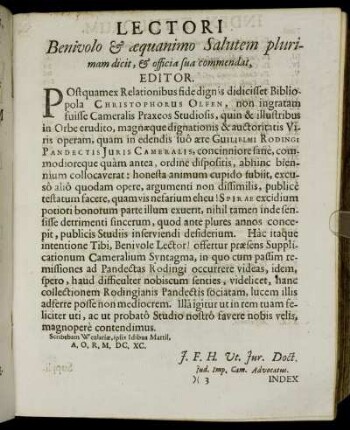 LECTORI
Benivolo & æquanimo Salutem pluri-
mam dicit, & officia sua commendat,
EDITOR.
POstquam ex Relationibus fide dignis didicisset Biblio-
pola CHRISTOPHORUS OLFEN, non ingratam
fuisse Cameralis Praxeos Studiosis, quin & illustribus
in Orbe erudito, magnæque dignationis & auctoritatis Vi-
ris operam, quam in edendis suo ære GUILIELMI RODINGI
PANDECTIS JURIS CAMERALIS, concinniore sane, com-
modioreque quàm antea, ordine dispositis, abhinc bien-
nium collocaverat: honesta animum cupido subiit, excu-
so aliô quodam opere, argumenti non dissimilis, publicè
testatum facere, quam vis nefarium eheu! SPIRAE excidium
potiori bonorum parte illum exuerit, nihil tamen inde sen-
sisse detrimenti sincerum, quod ante plures annos conce-
pit, publicis Studiis inserviendi desiderium. Hâc itaque
intentione Tibi, Benivole Lector! offertur præsens Suppli-
cationum Cameralium Syntagma, in quo cum passim re-
missiones ad Pandectas Rodingi occurrere videas, idem,
spero, haud difficulter nobiscum senties, videlicet, hanc
collectionem Rodingianis Pandectis sociatam, lucem illis
adferre posse non mediocrem. Illâ igitur ut in rem tuam fe-
liciter uti, ac ut probatô Studio nostrô favere nobis velis,
magnoperè contendimus.
ipsis Idibus Martii,
A, O, R, M, DC, XC.
J. F. H. Ut. Jur. Doct.
Jud. Imp. Cam. Advocatus.
)( 3
INDEX